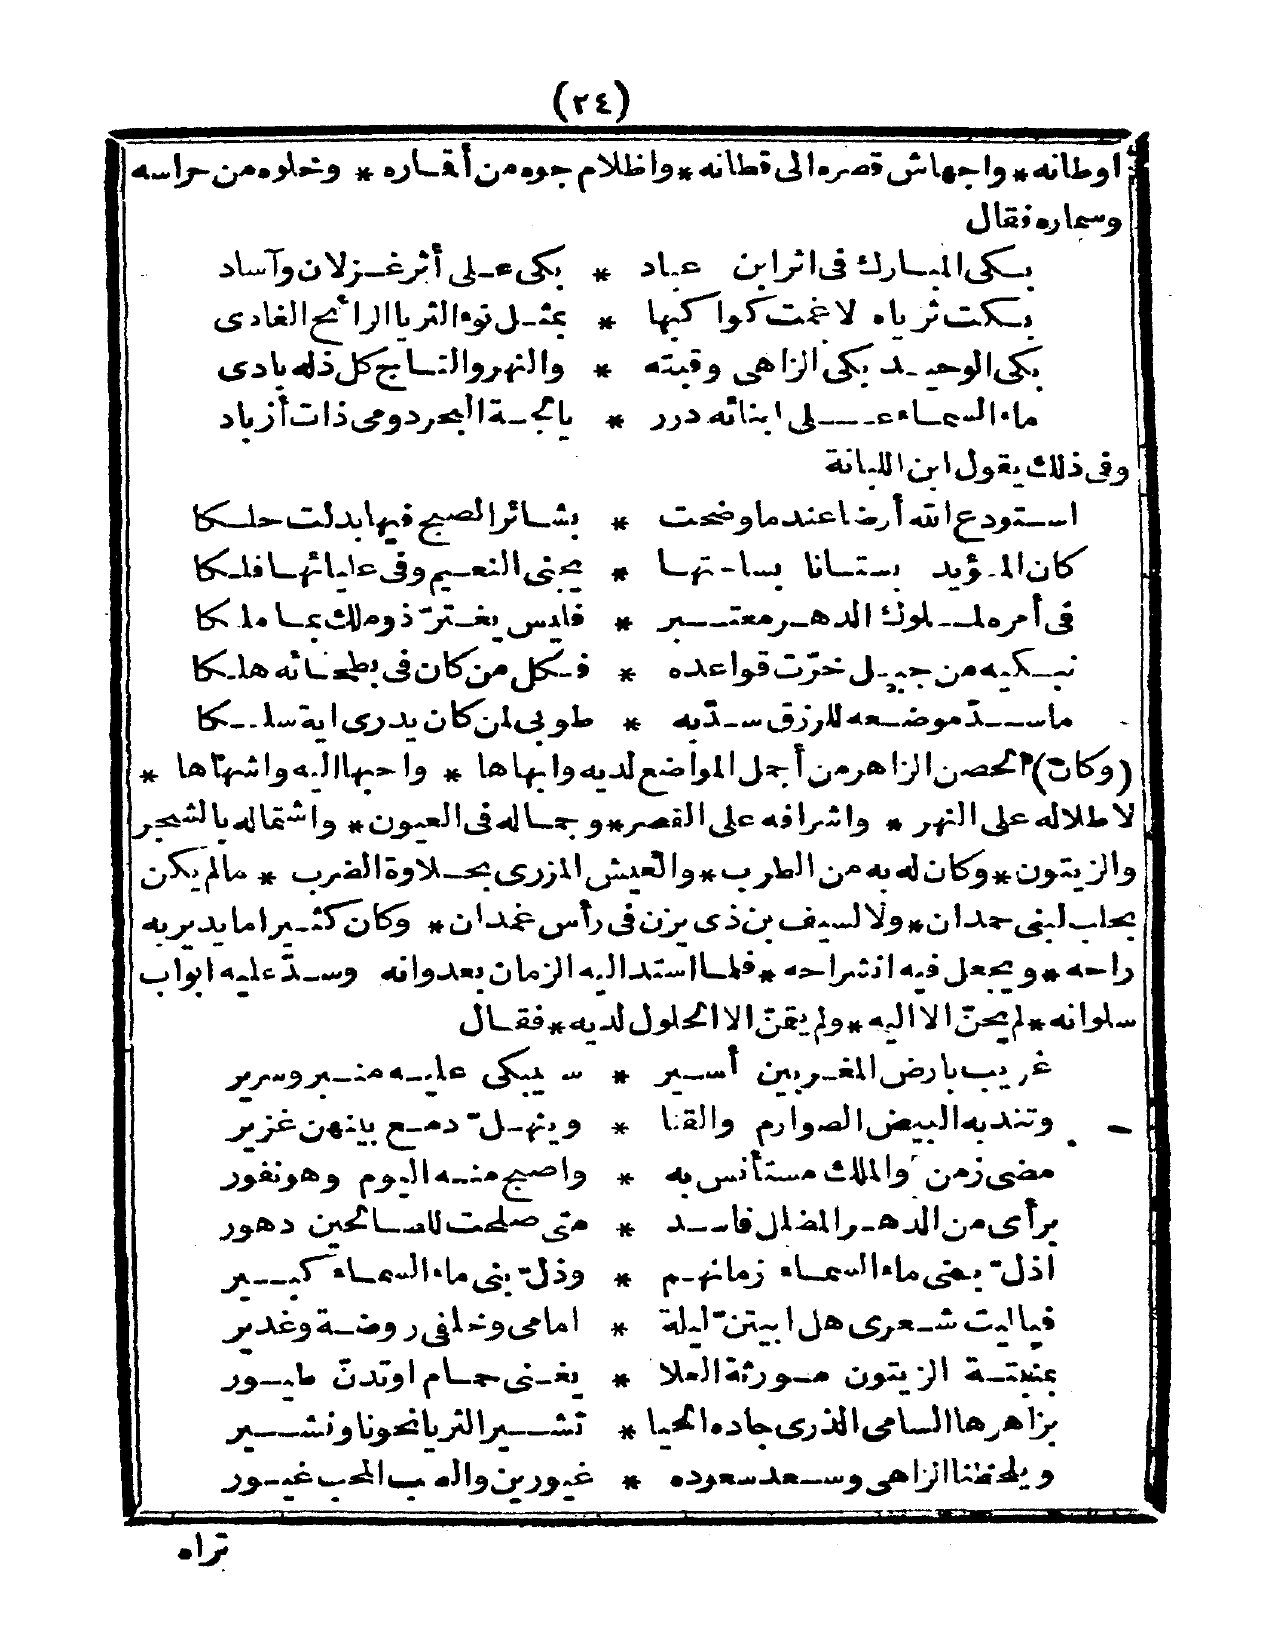 (٢٤)
اوطانه * واجهاش قصره الى قطانه * واظلام جوه من أقماره * وخلوه من حراسه
وسماره فقال
بكى المبارك فى اثر ابن عباد * بكى على أثر غزلان وآساد
بكت ثرياه لا غمت كواكبها * بمثل نوء الثريا الرائح الغادى
بكى الوحيد بكى الزاهى وقبته * والنهر والتاج كل ذله بادى
ماء السماء على ابنائه درر * يا لجة البحر دومى ذات أزباد
وفى ذلك يقول ابن اللبانة
استودع الله أرضا عند ما وضحت * بشائر الصبح فيها بدلت حلكا
كان المؤيد بستانا بساحتها * يجنى النعيم وفى عليائها فلكا
فى أمره لملوك الدهر معتبر * فليس يغترّ ذو ملك بما ملكا
نبكيه من جبل خرّت قواعده * فكل من كان فى بطحائه هلكا
ماسدّ موضعه للرزق سدّبه * طوبى لمن كان يدرى اية سلكا
(وكان) الحصن الزاهر من أجمل المواضع لديه وابهاها * واحبها اليه واشهاها *
لاطلاله على النهر * واشرافه على القصر * وجماله فى العيون * واشتماله بالشجر
والزيتون * وكان له به من الطرب * والعيش المزرى بحلاوة الضرب * مالم يكن
بحلب لبنى حمدان * ولا لسيف بن ذى يزن فى رأس غمدان * وكان كثيرا ما يدير به
راحه * ويجعل فيه انشراحه * فلما استد اليه الزمان بعدوانه وسدّ عليه ابواب
سلوانه * لم يحنّ الا اليه * ولم يقنّ الا الحلول لديه * فقال
غريب بارض المغربين أسير * سيبكى عليه منبر وسرير
وتندبه البيض الصوارم والقنا * وينهلّ دمع بينهن غزير
مضى زمن والملك مستأنس به * واصبح منه اليوم وهو نفور
برأى من الدهر المضلل فاسد * متى صلحت للصالحين دهور
اذلّ بنى ماء السماء زمانهم * وذلّ بنى ماء السماء كبير
فياليت شعرى هل ابيتنّ ليلة * امامى وخلفى روضة وغدير
بمنبتة الزيتون مورثة العلا * يغنى حمام اوتدنّ طيور
بزاهرها السامى الذرى جاده الحيا * تشير الثريا نحونا ونشير
ويلحظنا الزاهى وسعد سعوده * غيورين والصب المحب غيور
تراه